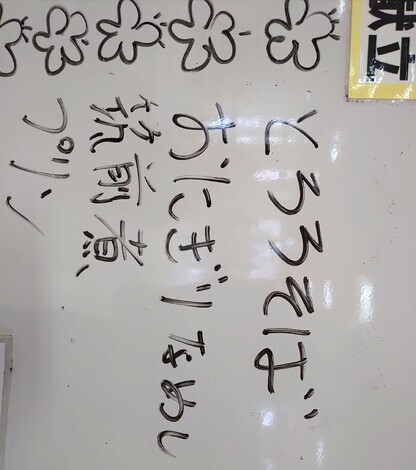 献立
とろろそば
おにぎりなめし
筑前煮
プリン